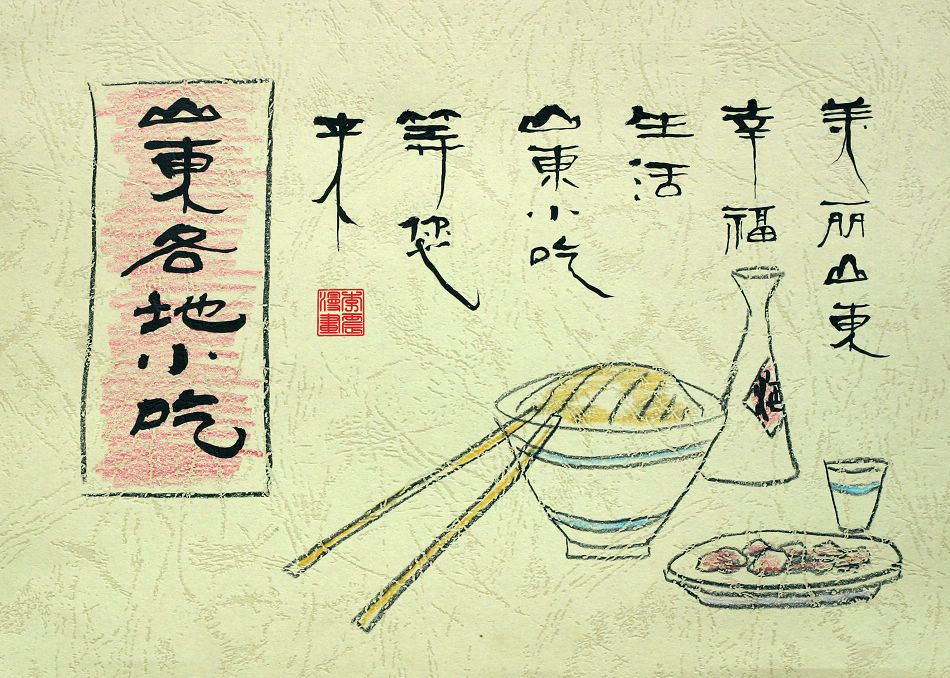 美丽山東
幸福
生活
山東小吃
等您
来
漫畫
山東各地小吃
酒